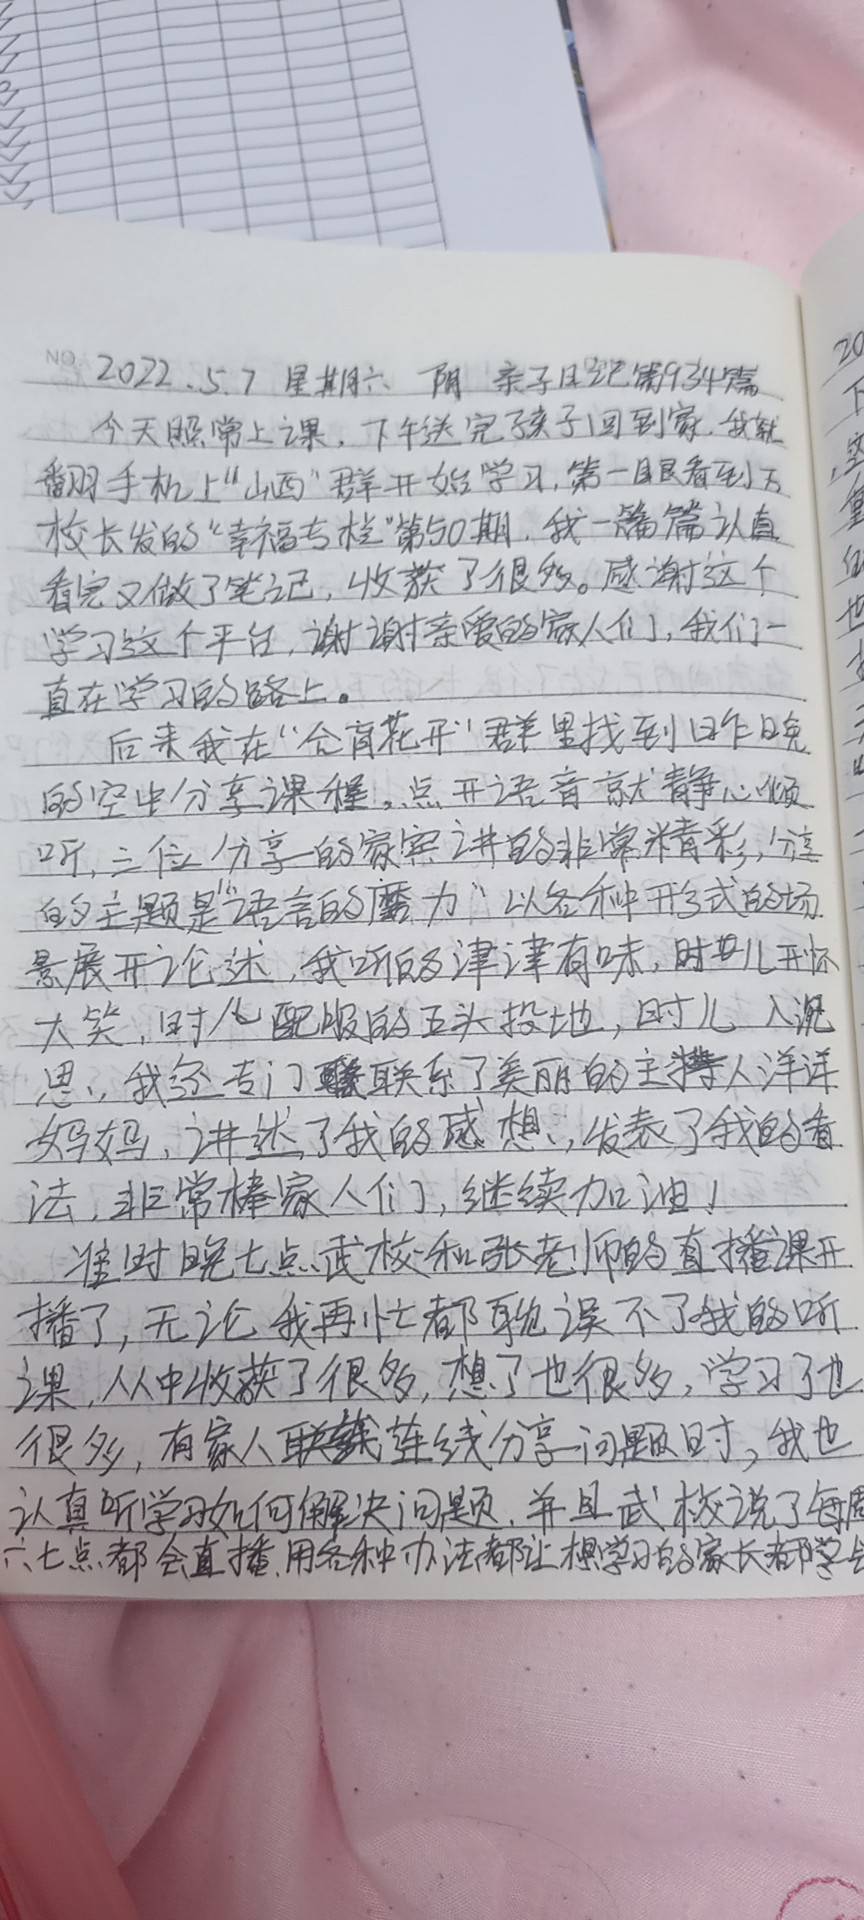 NO
2022.5.7 星期六 阴 亲子日记第934篇
今天照常上课，下午送完孩子回到家，我就
翻开手机上“山西”群开始学习，第一眼看到万
校长发的“幸福专栏”第50期，我一篇篇认真
看完又做了笔记，收获了很多。感谢这个
学习这个平台，谢谢亲爱的家人们，我们一
直在学习的路上。
后来我在“合育花开”群里找到昨晚
的空中分享课程，点开语音就静心倾
听，三位分享的家宾讲的非常精彩，分享
的主题是“语言的魔力”以各种形式的场
景展开论述，我听的津津有味，时儿开怀
大笑，时儿配服的五头投地，时儿入沉
思，我还专门联系了美丽的主持人洋洋
妈妈，讲述了我的感想，发表了我的看
法，非常棒家人们，继续加油！
准时晚七点武校和张老师的直播课开
播了，无论我再忙都耽误不了我的听
课，从中收获了很多，想了也很多，学习了也
很多，有家人连线分享问题时，我也
认真听学习如何解决问题，并且武校说了每周
六七点都会直播，用各种办法都让想学习的家长都学会
20
下